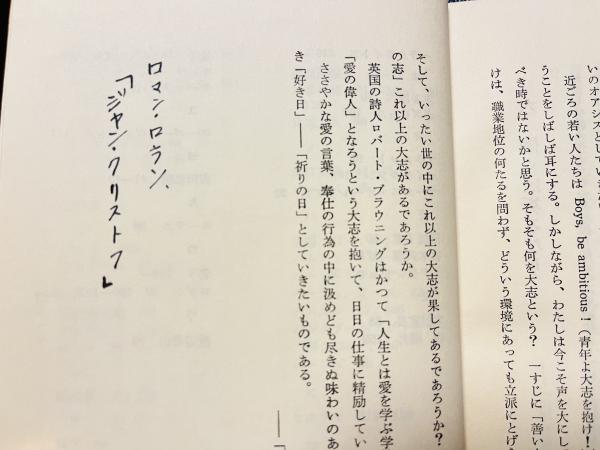 いのオアシスとしていき
近ごろの若い人たちは Boys, be ambitious！（青年よ大志を抱け！
うことをしばしば耳にする。しかしながら、わたしは今こそ声を大にし
べき時ではないかと思う。そもそも何を大志という？ 一すじに「善い
けは、職業地位の何たるを問わず、どういう環境にあっても立派にとげ
そして、いったい世の中にこれ以上の大志が果してあるであろうか？
の志」これ以上の大志があるであろうか。
英国の詩人ロバート・ブラウニングはかつて「人生とは愛を学ぶ学
「愛の偉人」となろうという大志を抱いて、日日の仕事に精励してい
ささやかな愛の言葉、奉仕の行為の中に汲めども尽きぬ味わいのあ
き「好き日」――「祈りの日」としていきたいものである。
――「
ロマン・ロラン、
「ジャン・クリストフ」